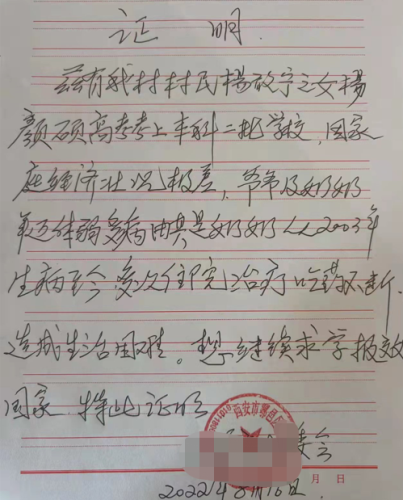 证 明
兹有我村村民杨放宁之女杨
颜硕高考考上本科二批学校,因家
庭经济壮况极差,爷爷及奶奶
年迈体弱多病尤其是奶奶从2003年
生病至今多次住院治疗吃药不断,
造成生活困难。想继续求学报效
国家 特此证明
西安市
委会
月 日
2022年8月16日